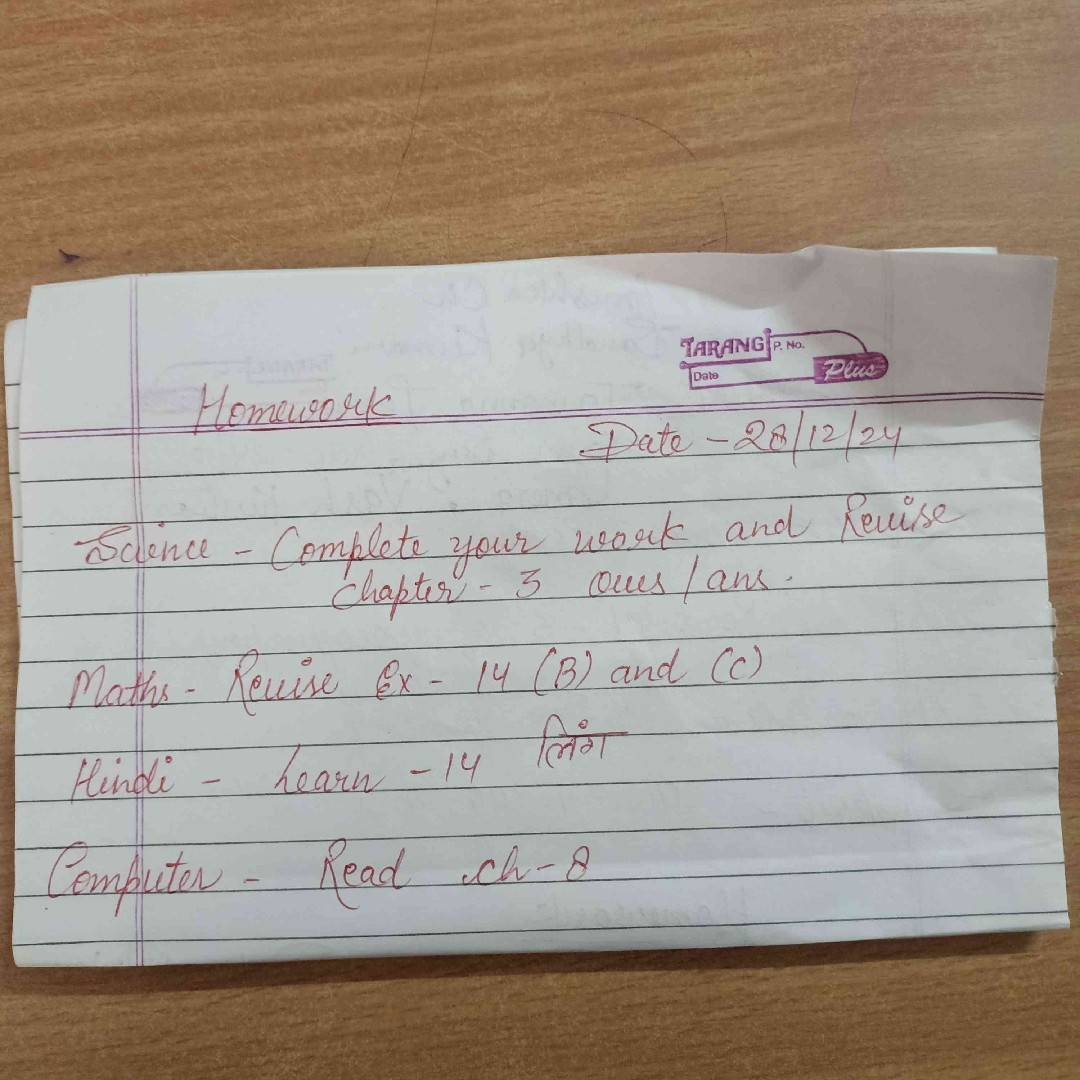 TARANG P. No.
Date Plus
Homework
Date - 28/12/24
Science - Complete your work and Revise
chapter - 3 Ques / ans.
Maths - Revise Ex - 14 (B) and (C)
Hindi - Learn - 14 लिंग
Computer - Read ch - 8